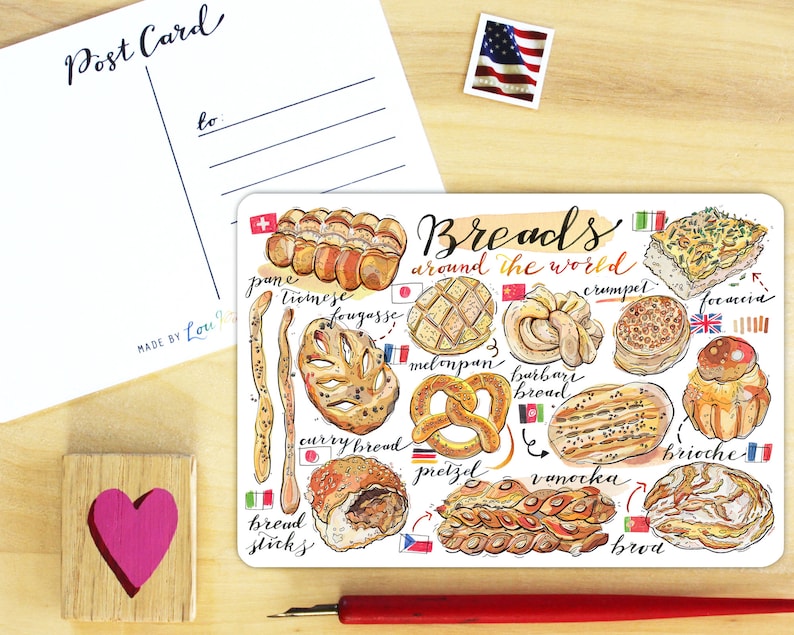 Post Card
to:
MADE BY Lou
Breads
around the world
pane
ticinese
fougasse
melonpan
crumpet
focaccia
barbari
bread
curry bread
pretzel
brioche
vanocka
bread
sticks
brod